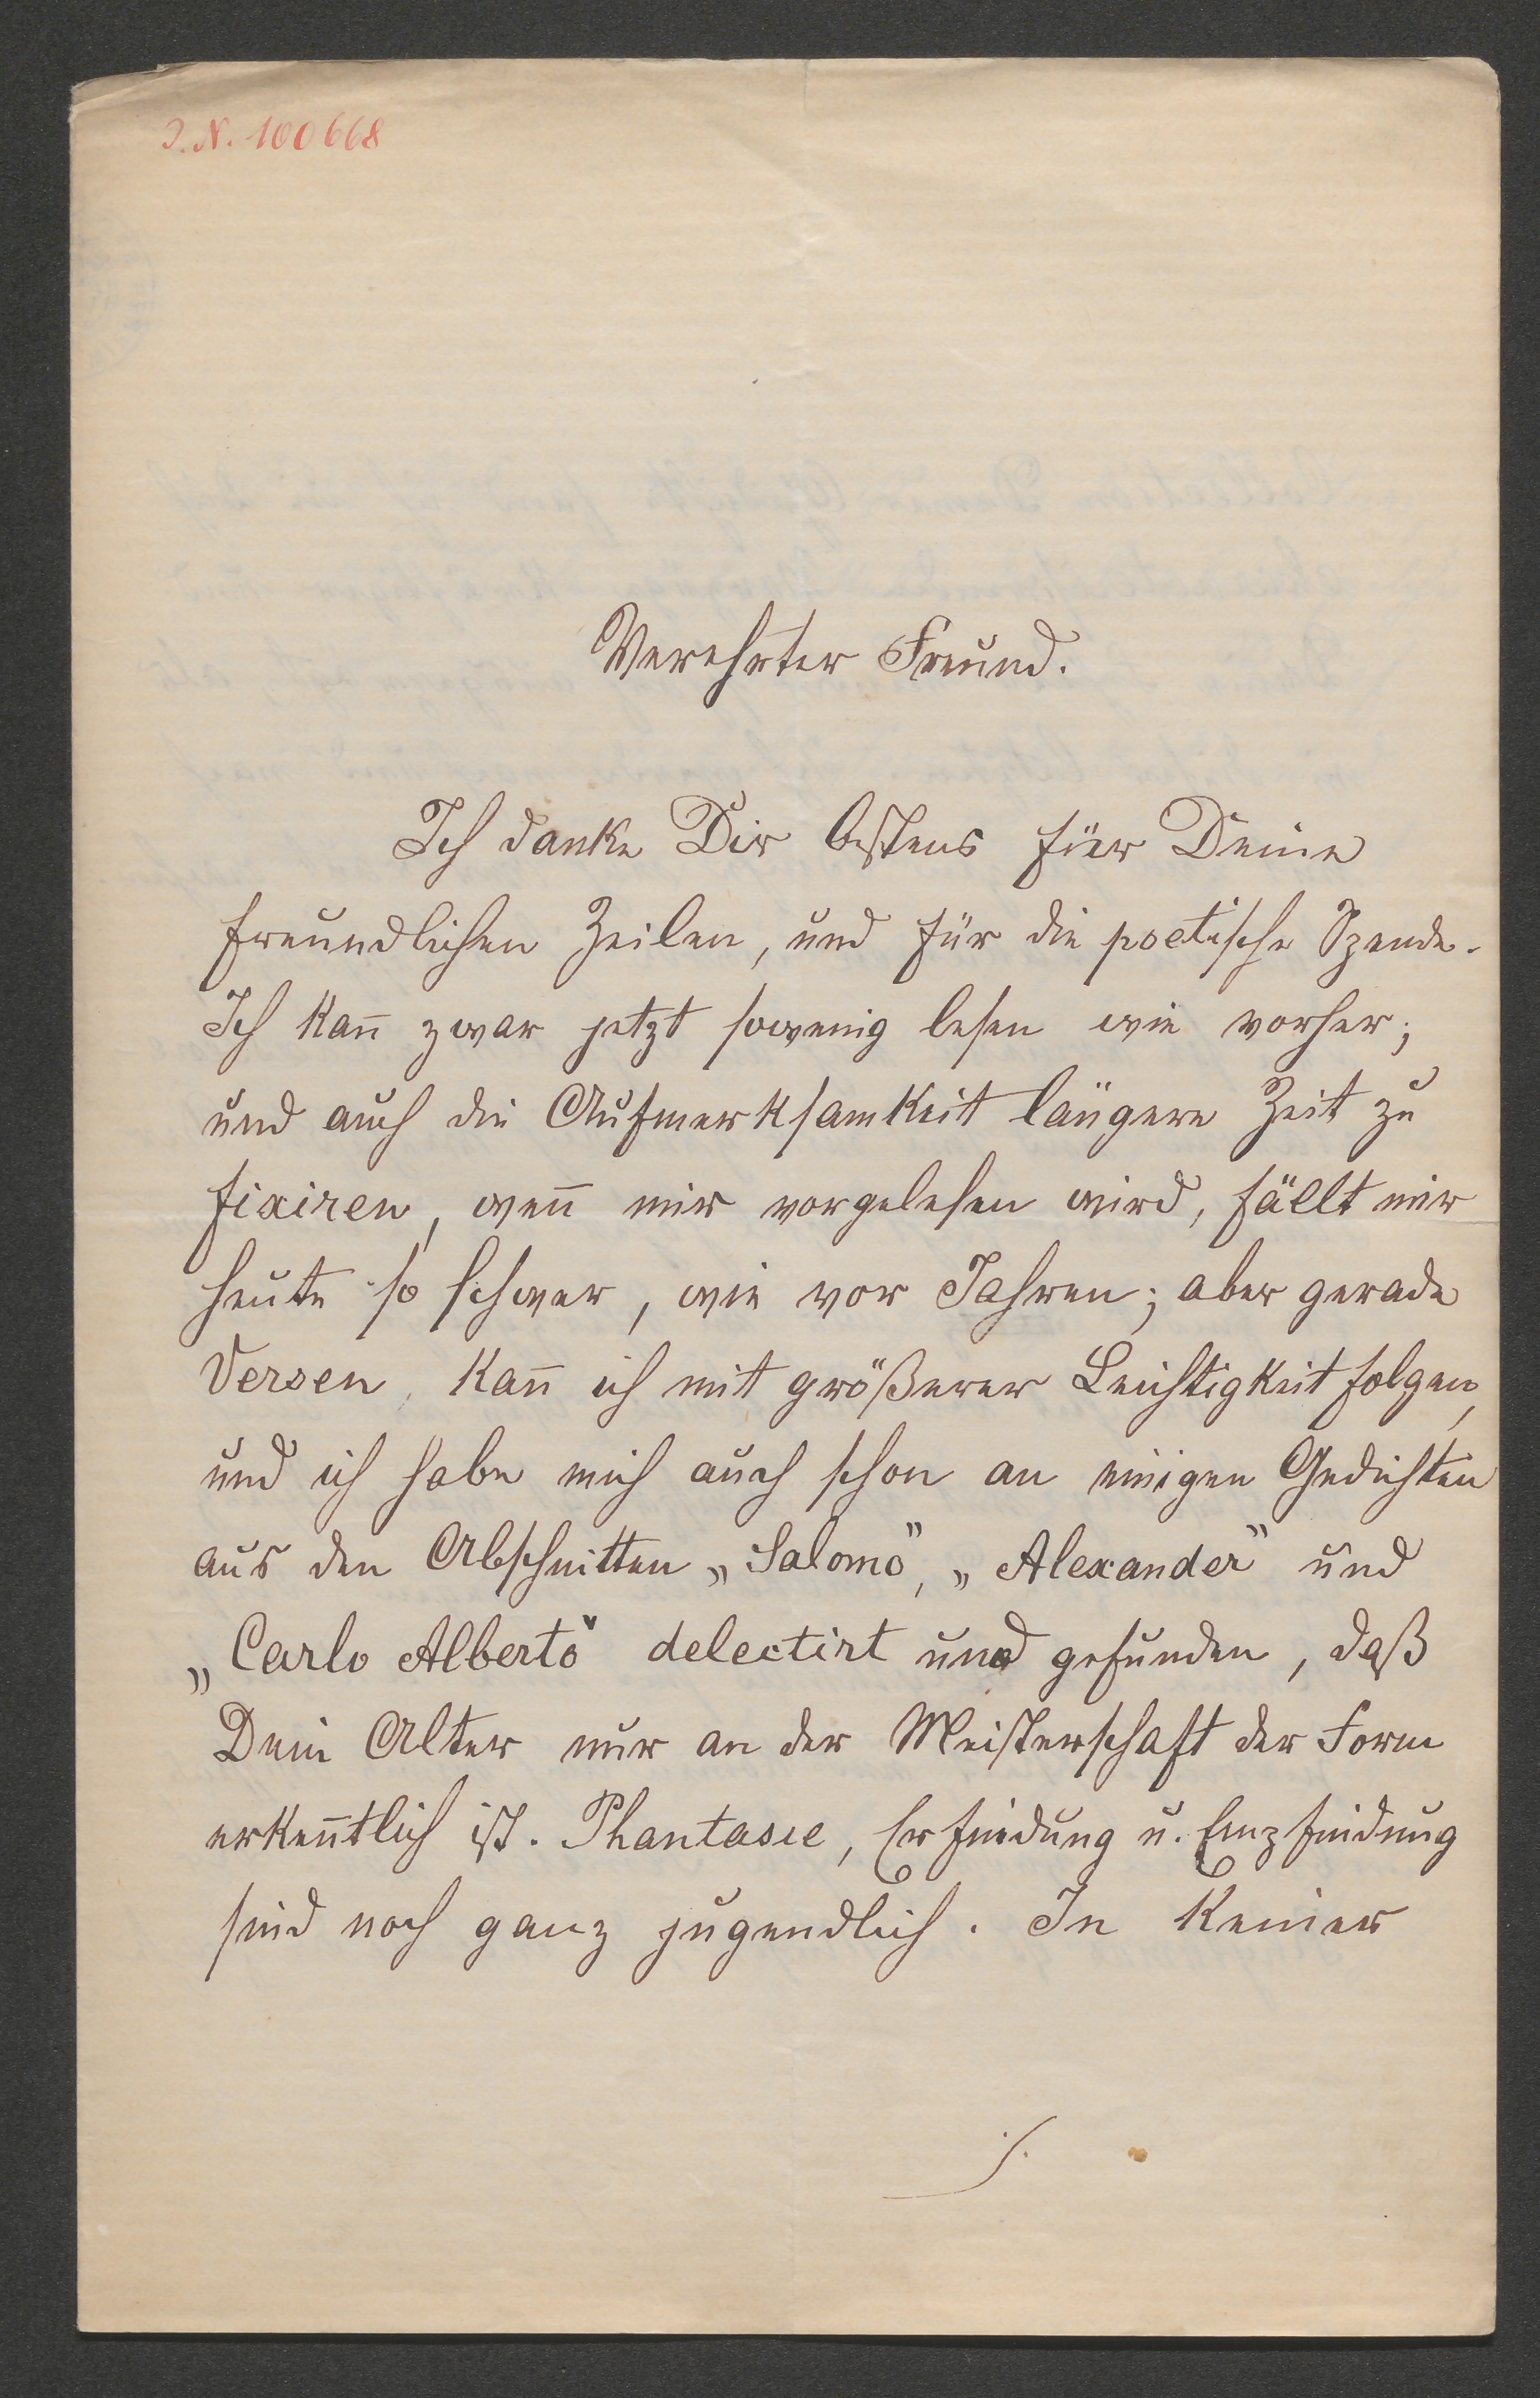 J. N. 100668
Verehrter Freund.
Ich danke Dir bestens für Deine
freundlichen Zeilen, und für die poetische Spende.
Ich kan̄ zwar jetzt sowenig lesen wie vorher;
und auch die Aufmerksamkeit längere Zeit zu
fixiren, wen̄ mir vorgelesen wird, fällt mir
heute so schwer, wie vor Jahren; aber gerade
Versen kan̄ ich mit größerer Leichtigkeit folgen,
und ich habe mich auch schon an einigen Gedichten
aus den Abschnitten „Salomo", „Alexander" und
„Carlo Alberto" delectirt und gefunden, daß
Dein Alter nur an der Meisterschaft der Form
erken̄tlich ist. Phantasie, Erfindung u. Empfindung
sind noch ganz jugendlich. In keiner
./.